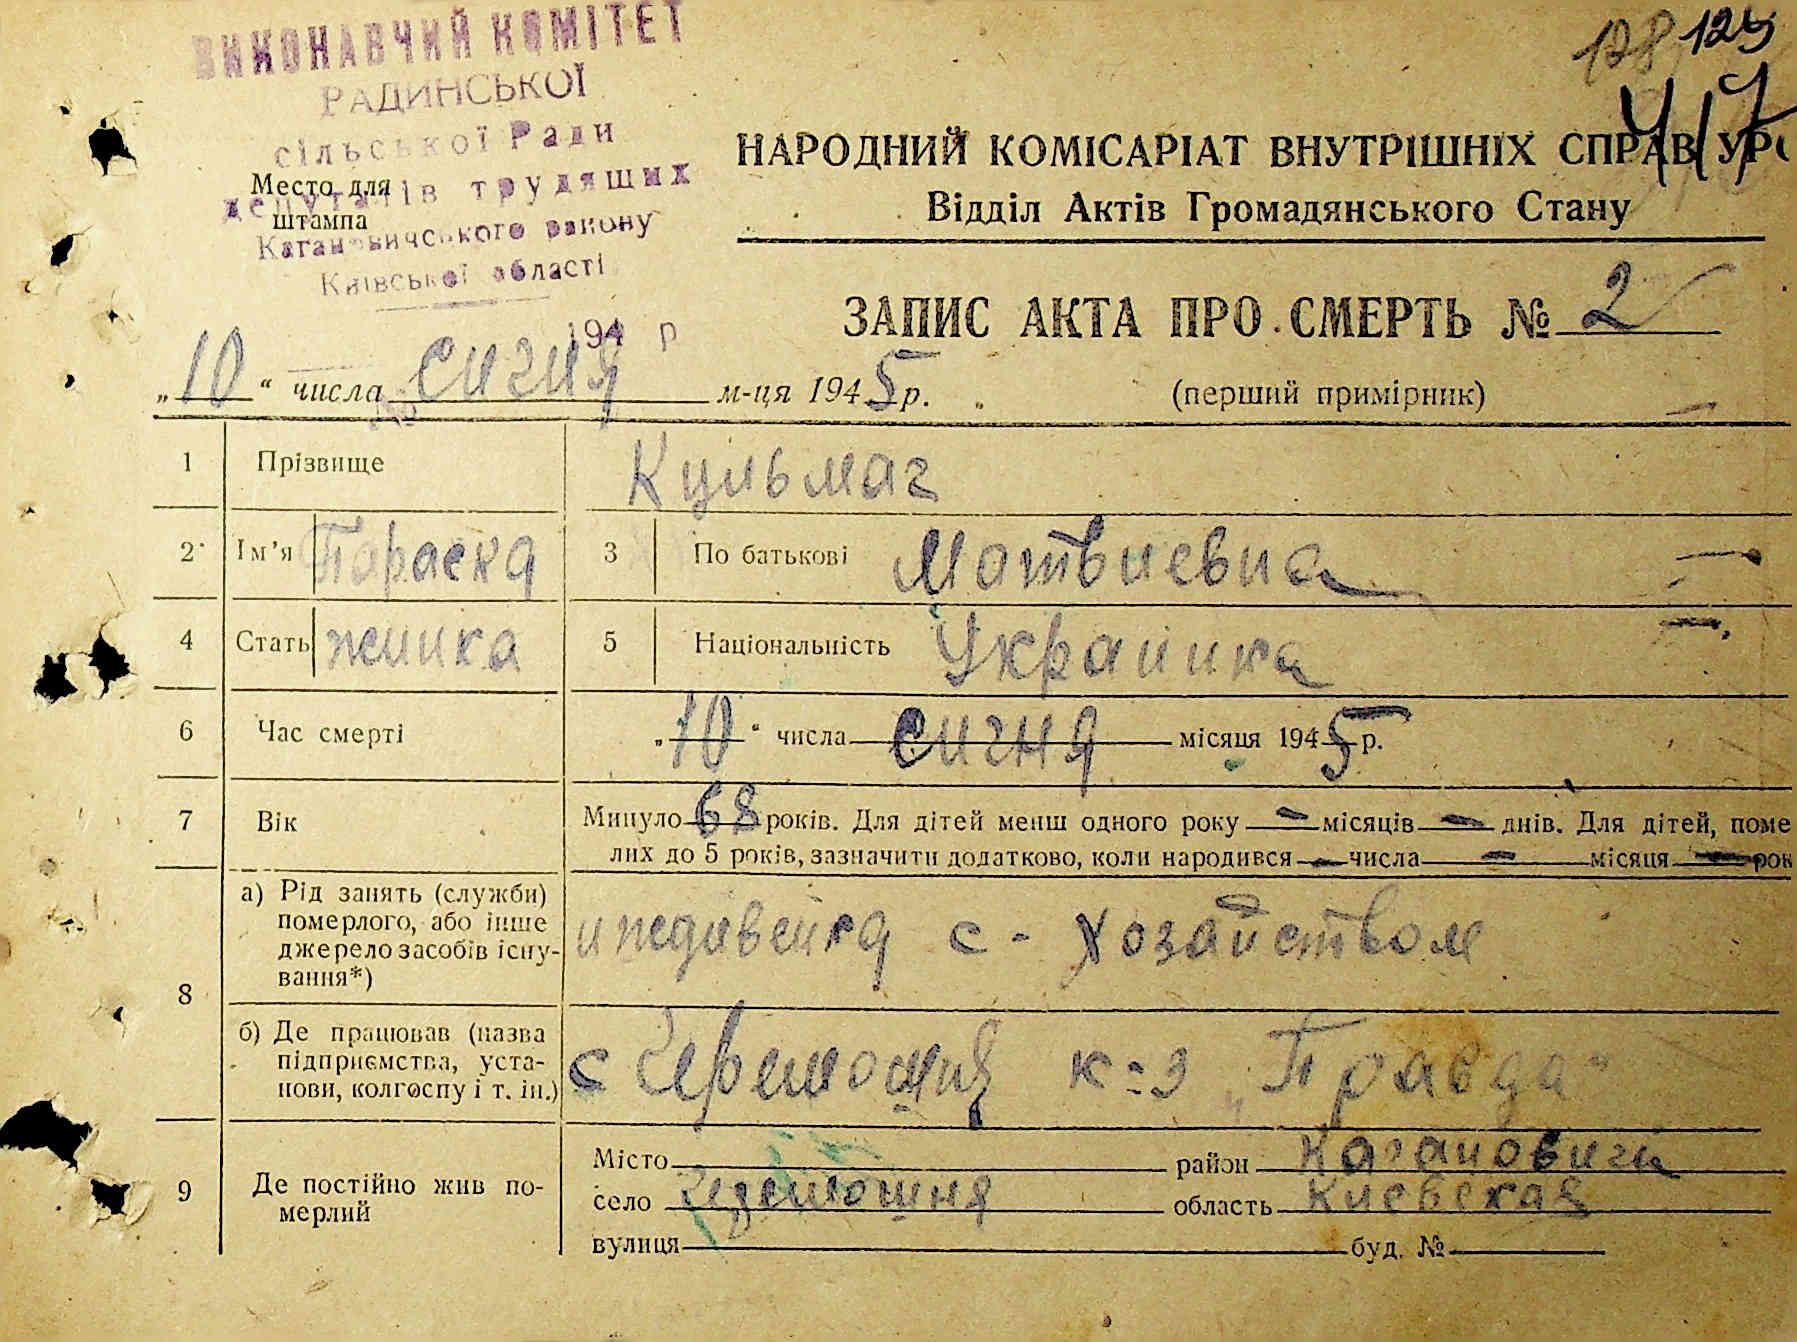 ВИКОНАВЧИЙ КОМІТЕТ
РАДИНСЬКОЇ
сільської Ради
депутатів трудящих
Кагановичського району
Київської області
194 р
Место для
штампа
128 125
417
НАРОДНИЙ КОМІСАРІАТ ВНУТРІШНІХ СПРАВ УРС
Відділ Актів Громадянського Стану
ЗАПИС АКТА ПРО СМЕРТЬ № 2
„10“ числа сичня м-ця 1945 р. (перший примірник)
1 Прізвище Кульмач
2 Ім’я Параска 3 По батькові Матвиевна
4 Стать жинка 5 Національність Украинка
6 Час смерті „10“ числа сичня місяця 1945 р.
7 Вік Минуло 68 років. Для дітей менш одного року — місяців — днів. Для дітей, поме
лих до 5 років, зазначити додатково, коли народився — числа — місяця — рок
8 а) Рід занять (служби) померлого, або інше джерело засобів існування*) иждивенка с - хозайством
б) Де працював (назва підприємства, установи, колгоспу і т. ін.) с Черемошня к-з „Правда"
9 Де постійно жив померлий
Місто район Кагановичи
село Черемошня область Киевская
вулиця буд. №